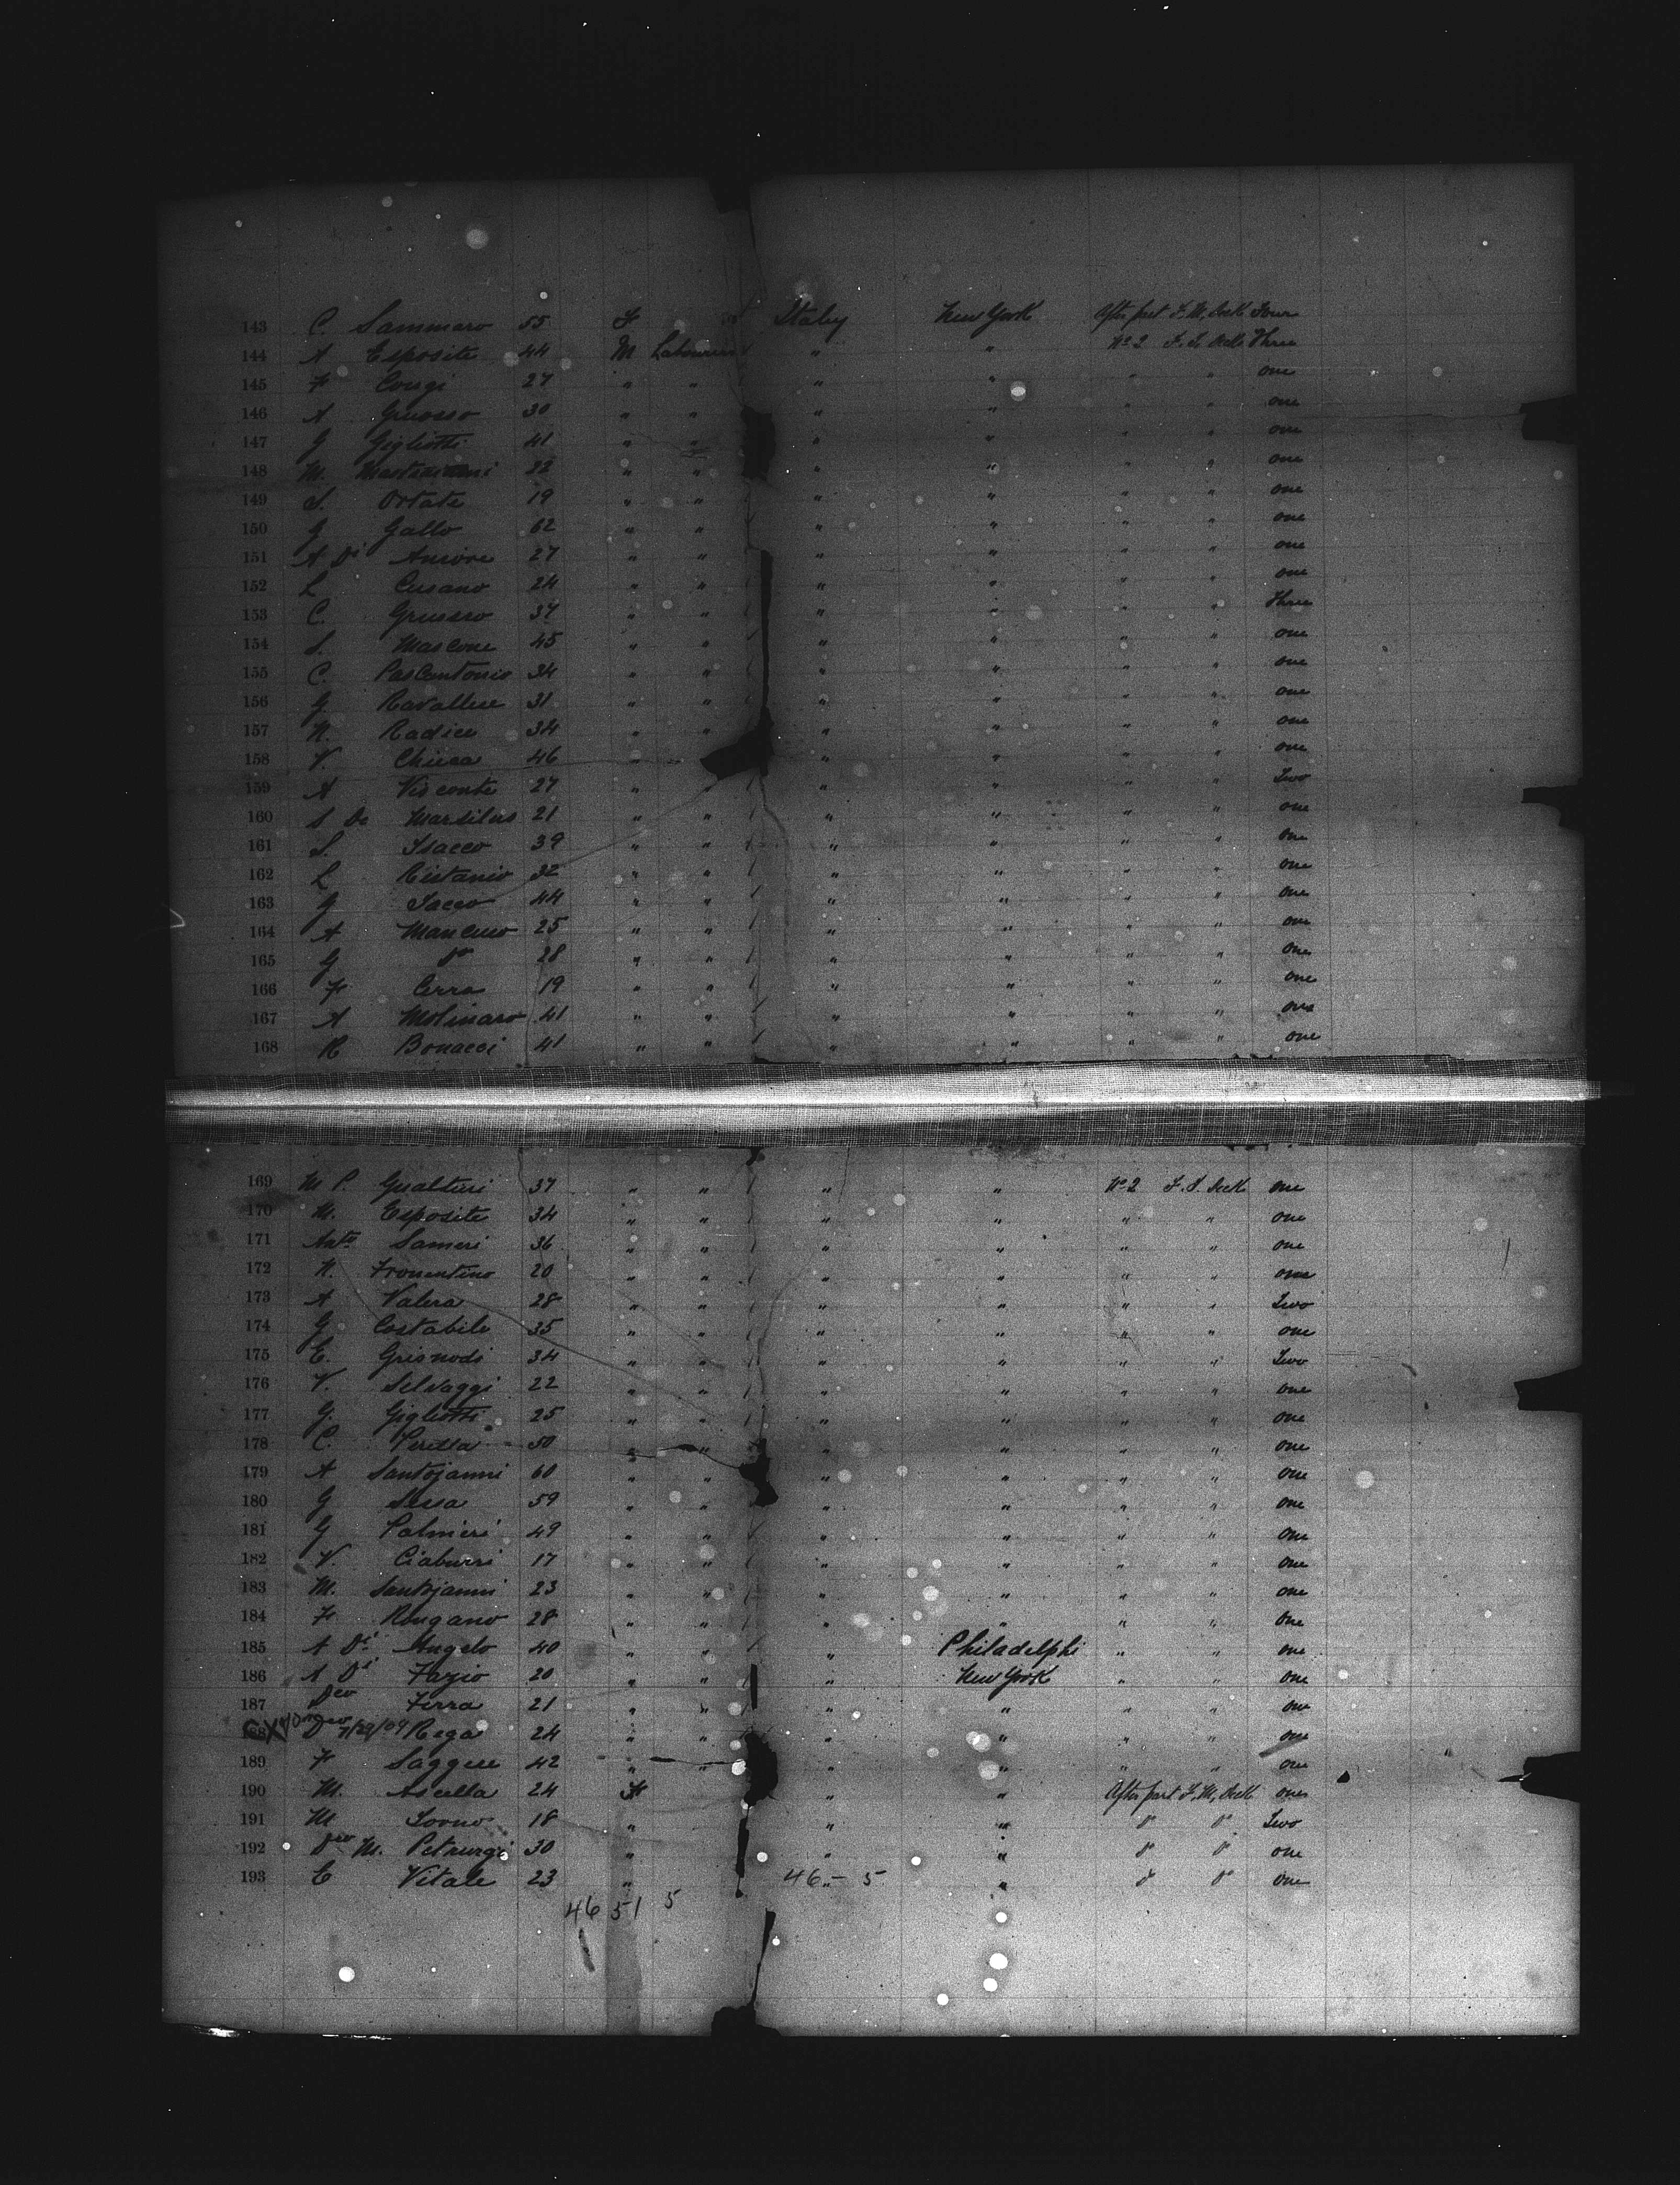 143 C. Sammaro 55 F Italy New York After part F. M. Deck Four
144 A Esposite 44 M Labourer " " No 2 F. S. Deck Three
145 F Congi 27 " " " " " " one
146 A Gruosso 30 " " " " " " one
147 G Gigliotti 41 " " " " " " one
148 M. 22 " " " " " " one
149 S. Ortate 19 " " " " " " one
150 G Gallo 62 " " " " " " one
151 A Di Amore 27 " " " " " " one
152 L Cusano 24 " " " " " " one
153 C. Grusso 37 " " " " " " Three
154 S. Mascone 45 " " " " " " one
155 C. Pascantonio 34 " " " " " " one
156 G Ravallese 31 " " " " " " one
157 N. Radice 34 " " " " " " one
158 V. Chiera 46 " " " " " " one
159 A Visconte 27 " " " " " " Two
160 S De Marsilus 21 " " " " " " one
161 S. Isacco 39 " " " " " " one
162 L Ristanio 32 " " " " " " one
163 G Sacco 44 " " " " " " one
164 A Mancuso 25 " " " " " " one
165 G Do 28 " " " " " " one
166 F Cerra 19 " " " " " " one
167 A Molinaro 41 " " " " " " one
168 R Bonacci 41 " " " " " " one
169 M P. Gualtieri 37 " " " " No 2 F. S. Deck one
170 M. Esposite 34 " " " " " " one
171 Anto Sameri 36 " " " " " " one
172 N. Fromentino 20 " " " " " " one
173 A Valera 28 " " " " " " Two
174 G Costabile 35 " " " " " " one
175 E. Grisnodi 34 " " " " " " Two
176 V. Selvaggi 22 " " " " " " one
177 G. Gigliotti 25 " " " " " " one
178 C. Peretta 50 " " " " " " one
179 A Santojanni 60 " " " " " " one
180 G Sessa 59 " " " " " " one
181 G Palmieri 49 " " " " " " one
182 V. Ciaburri 17 " " " " " " one
183 M. Santojanni 23 " " " " " " one
184 F Rongano 28 " " " " " " one
185 A Di Angelo 40 " " " Philadelphi " " one
186 A Di Fazio 20 " " " New York " " one
187 Dco Ferra 21 " " " " " " one
188 7/29/09 Rega 24 " " " " " " one
189 F Saggese 42 " " " " " " one
190 M. Ascella 24 F " " After part F. M. Deck one
191 M Iorno 18 " " " Do Do Two
192 Dco M. 30 " " " Do Do one
193 E Vitale 23 " 46 - 5 " Do Do one
46 51 5